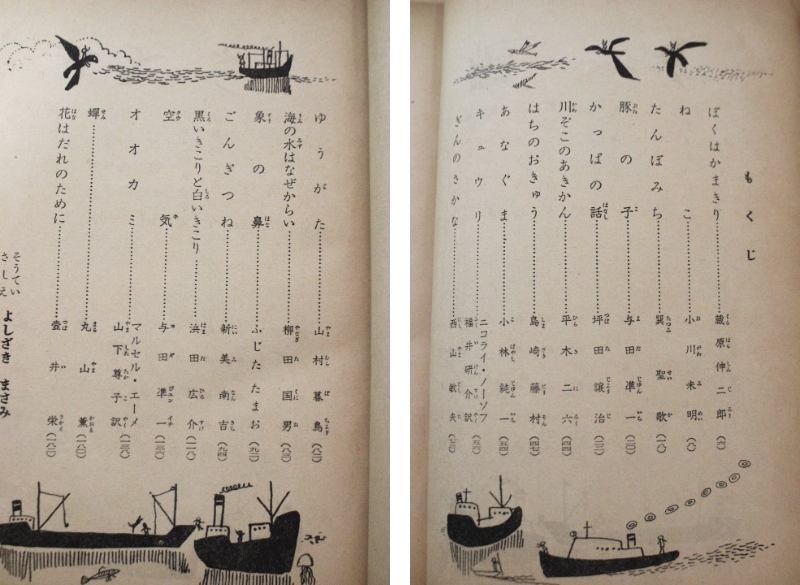 もくじ
ぼくはかまきり 蔵原伸二郎 (六)
ねこ 小川未明 (八)
たんぽみち 巽聖歌 (一八)
豚の子 与田凖一 (二〇)
かっぱの話 坪田譲治 (三一)
川ぞこのあきかん 平木二六 (四四)
はちのおきゅう 島崎藤村 (四七)
あなぐま 小林純一 (五四)
キュウリ ニコライ・ノーソフ 福井研介訳
ぎんのさかな 西山敏夫
ゆうがた 山村暮鳥
海の水はなぜからい 柳田国男
象の鼻 ふじたたまお (九二)
ごんぎつね 新美南吉 (九四)
黒いきこりと白いきこり 浜田広介
空気 与田凖一
オオカミ マルセル・エーメ 山下尊子訳
蟬 丸山薫 (一八〇)
花はだれのために 壺井栄 (一八二)
そうてい
さしえ よしざき まさみ